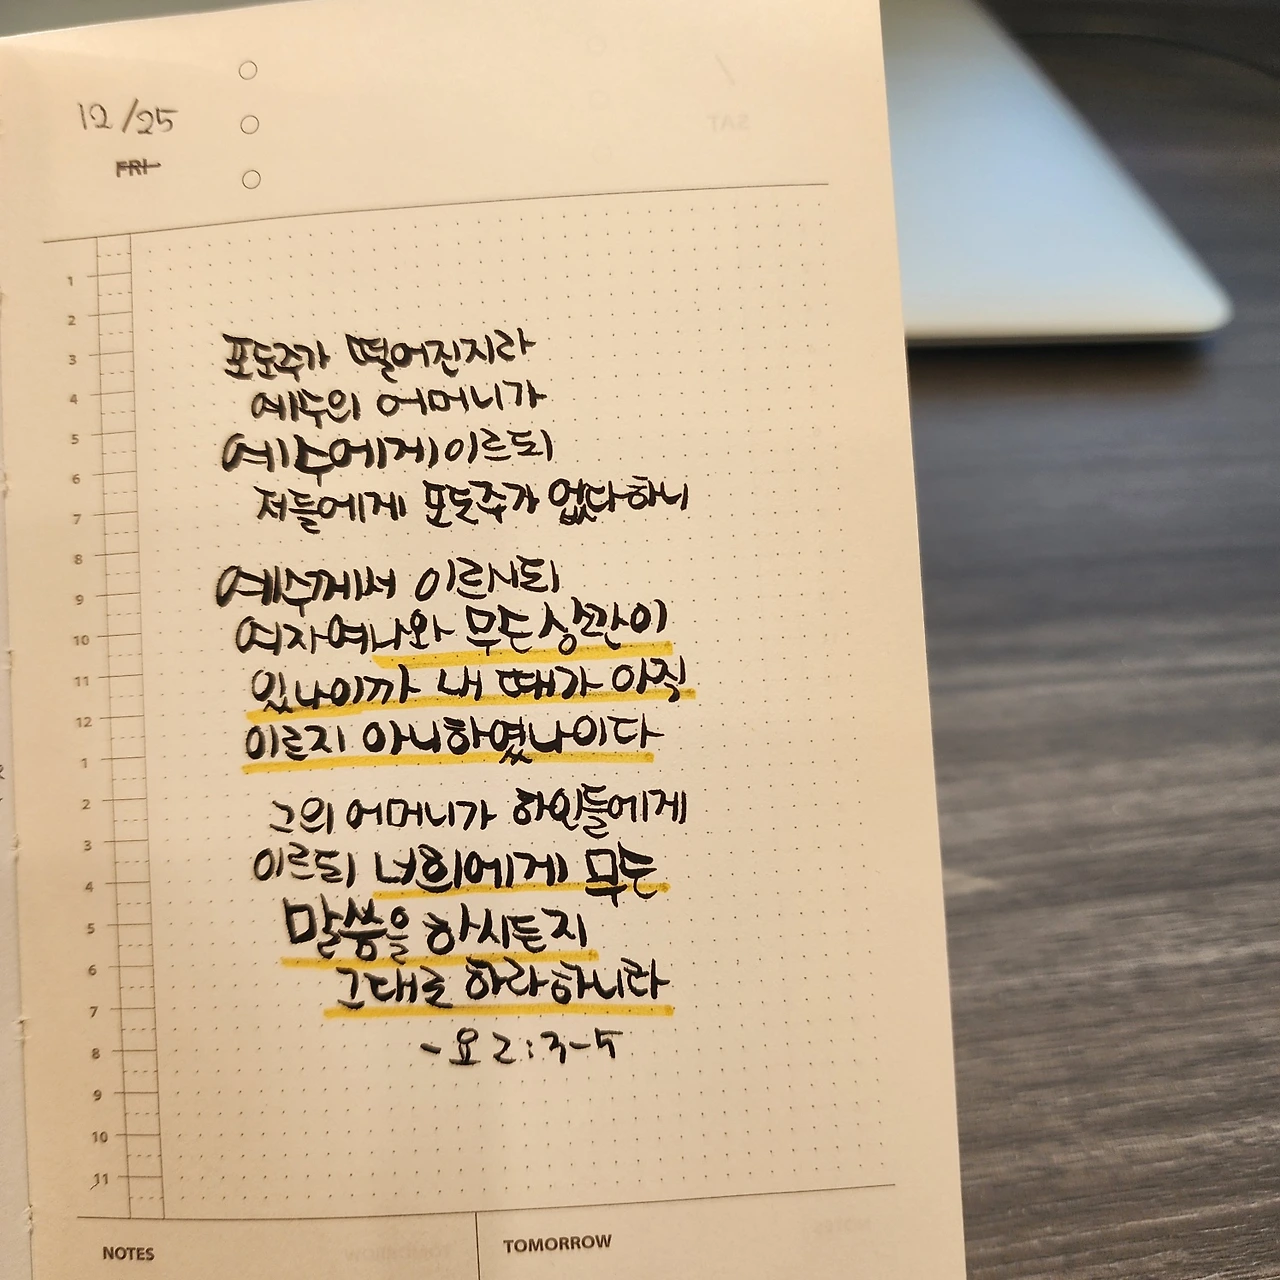 12/25
FRI
SAT
1
2
3
4
5
6
7
8
9
10
11
12
1
2
3
4
5
6
7
8
9
10
11
포도주가 떨어진지라
예수의 어머니가
예수에게 이르되
저들에게 포도주가 없다하니
예수께서 이르시되
여자여 나와 무든 상관이
있나이까 내 때가 아직
이르지 아니하였나이다
그의 어머니가 하인들에게
이르되 너희에게 무든
말씀을 하시든지
그대로 하라하니라
- 요 2:3-5
NOTES
TOMORROW